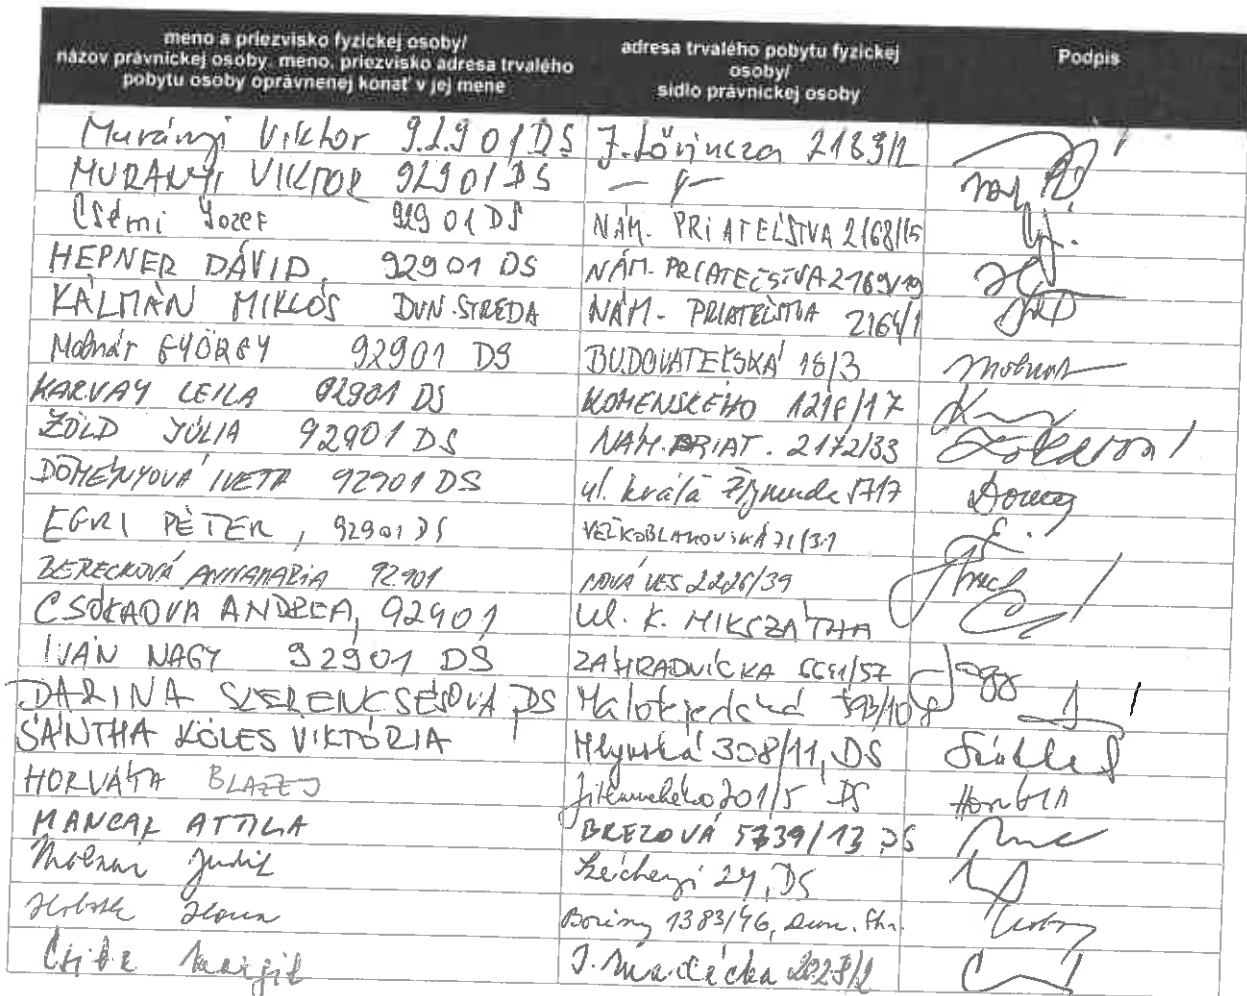 meno a priezvisko fyzickej osoby/
názov právnickej osoby, meno, priezvisko adresa trvalého
pobytu osoby oprávnenej konať v jej mene
adresa trvalého pobytu fyzickej
osoby/
sídlo právnickej osoby
Podpis
Murányi Viktor 92901 DS J. Lőrincza 2189/2
MURANYI VIKTOR 92901 DS
Csémi Jozef 929 01 DS NÁM. PRIATEĽSTVA 2168/15
HEPNER DÁVID, 92901 DS NÁM. PRIATEĽSTVA 2169/19
KÁLMÁN MIKLÓS DUN. STREDA NÁM. PRIATEĽSTVA 2164/1
Molnár GYÖRGY 92901 DS BUDOVATEĽSKÁ 16/3
KARVAY LEILA 92901 DS KOMENSKÉHO 1218/17
ZÖLD JÚLIA 92901 DS NÁM. PRIAT. 2172/33
DÖMÉNYOVÁ IVETA 92901 DS ul. kráľa Žigmunda
EGRI PÉTER, 92901 DS VEĽKOBLAHOVSKÁ 71/31
BERECKOVÁ ANNAMARIA 92901 NOVÁ VES 2226/39
CSÓKAOVÁ ANDREA, 92901 Ul. K. MIKSZÁTHA
IVAN NAGY 92901 DS ZÁHRADNÍCKA 6641/57 Nagy
DARINA SZERENCSÉSOVÁ, DS Malotejedská
SÁNTHA KÖLES VIKTÓRIA Mlynská 308/11, DS
HORVÁTH BLAZEJ Jilemnického 201/5 DS
MANCAL ATTILA BREZOVÁ 5739/13 DS
Molnár Judit Széchenyi 24, DS
Boriny 1383/46, Dun. Str.
Csiba Margit